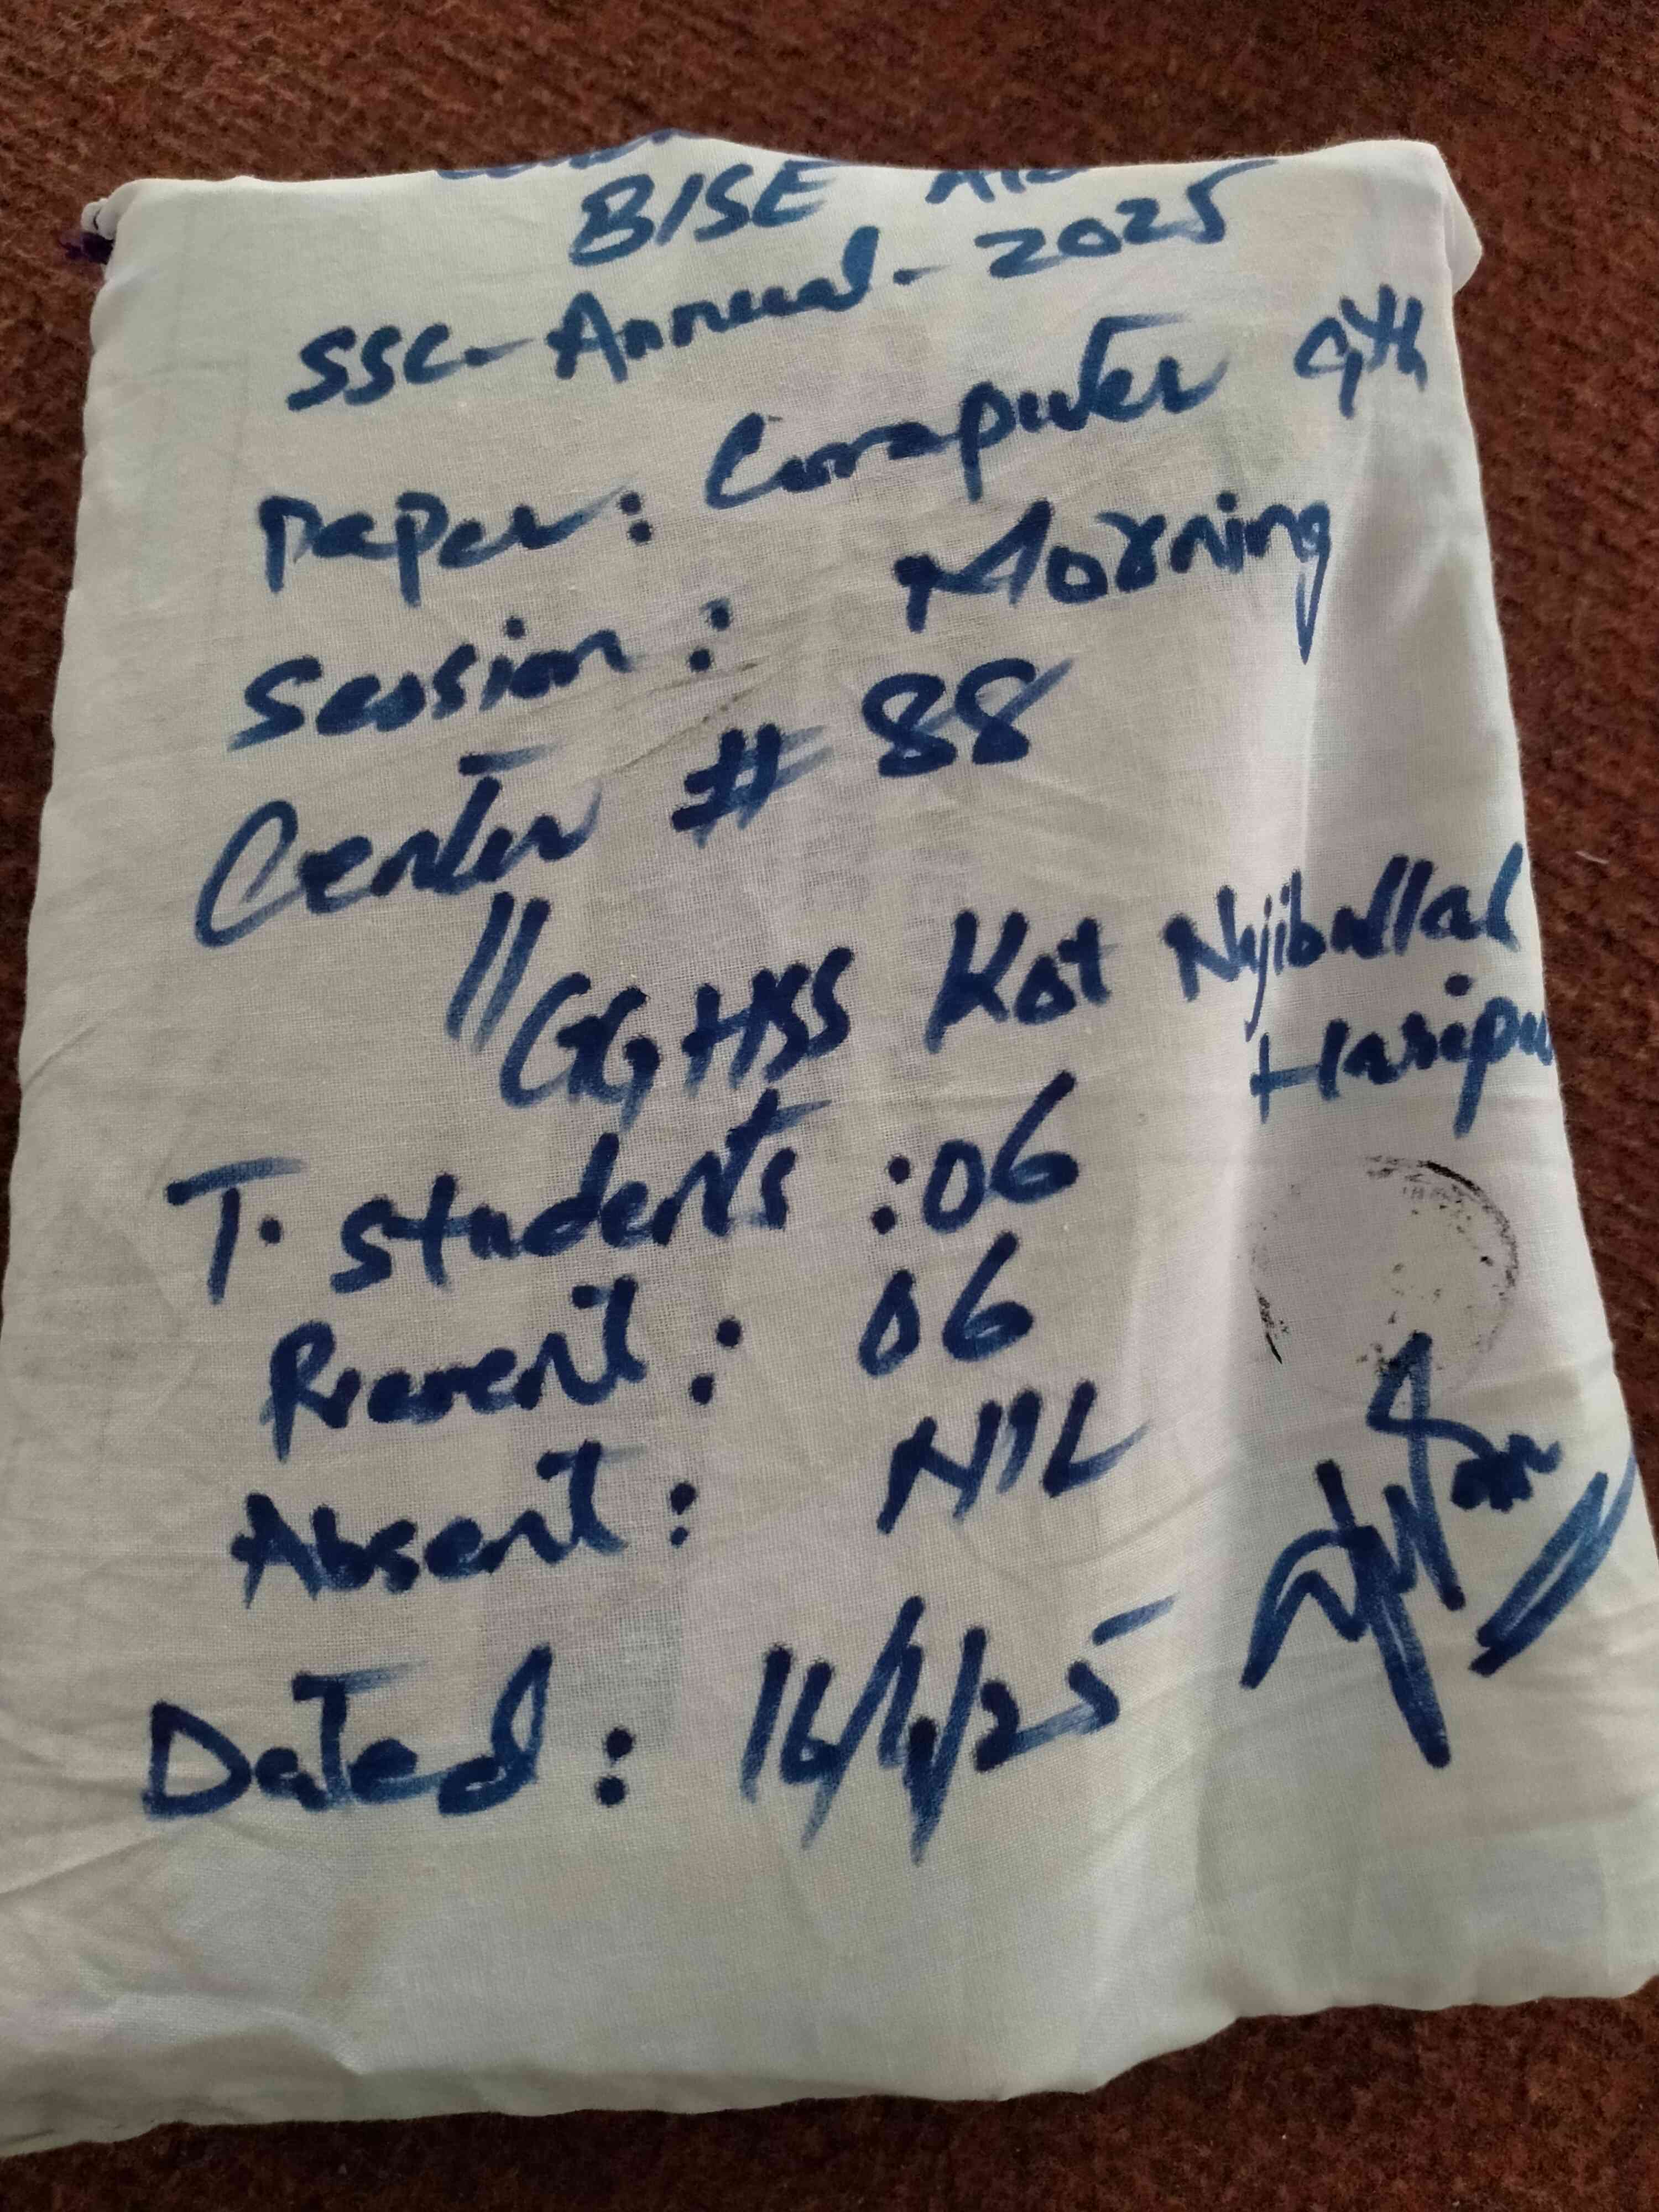 BISE
SSC-Annual-2025
Paper: Computer 9th
Session: Morning
Center # 88
" GGHSS Kot Najibullah
Haripur
T. Students : 06
Present : 06
Absent : NIL
Dated : 16/4/25